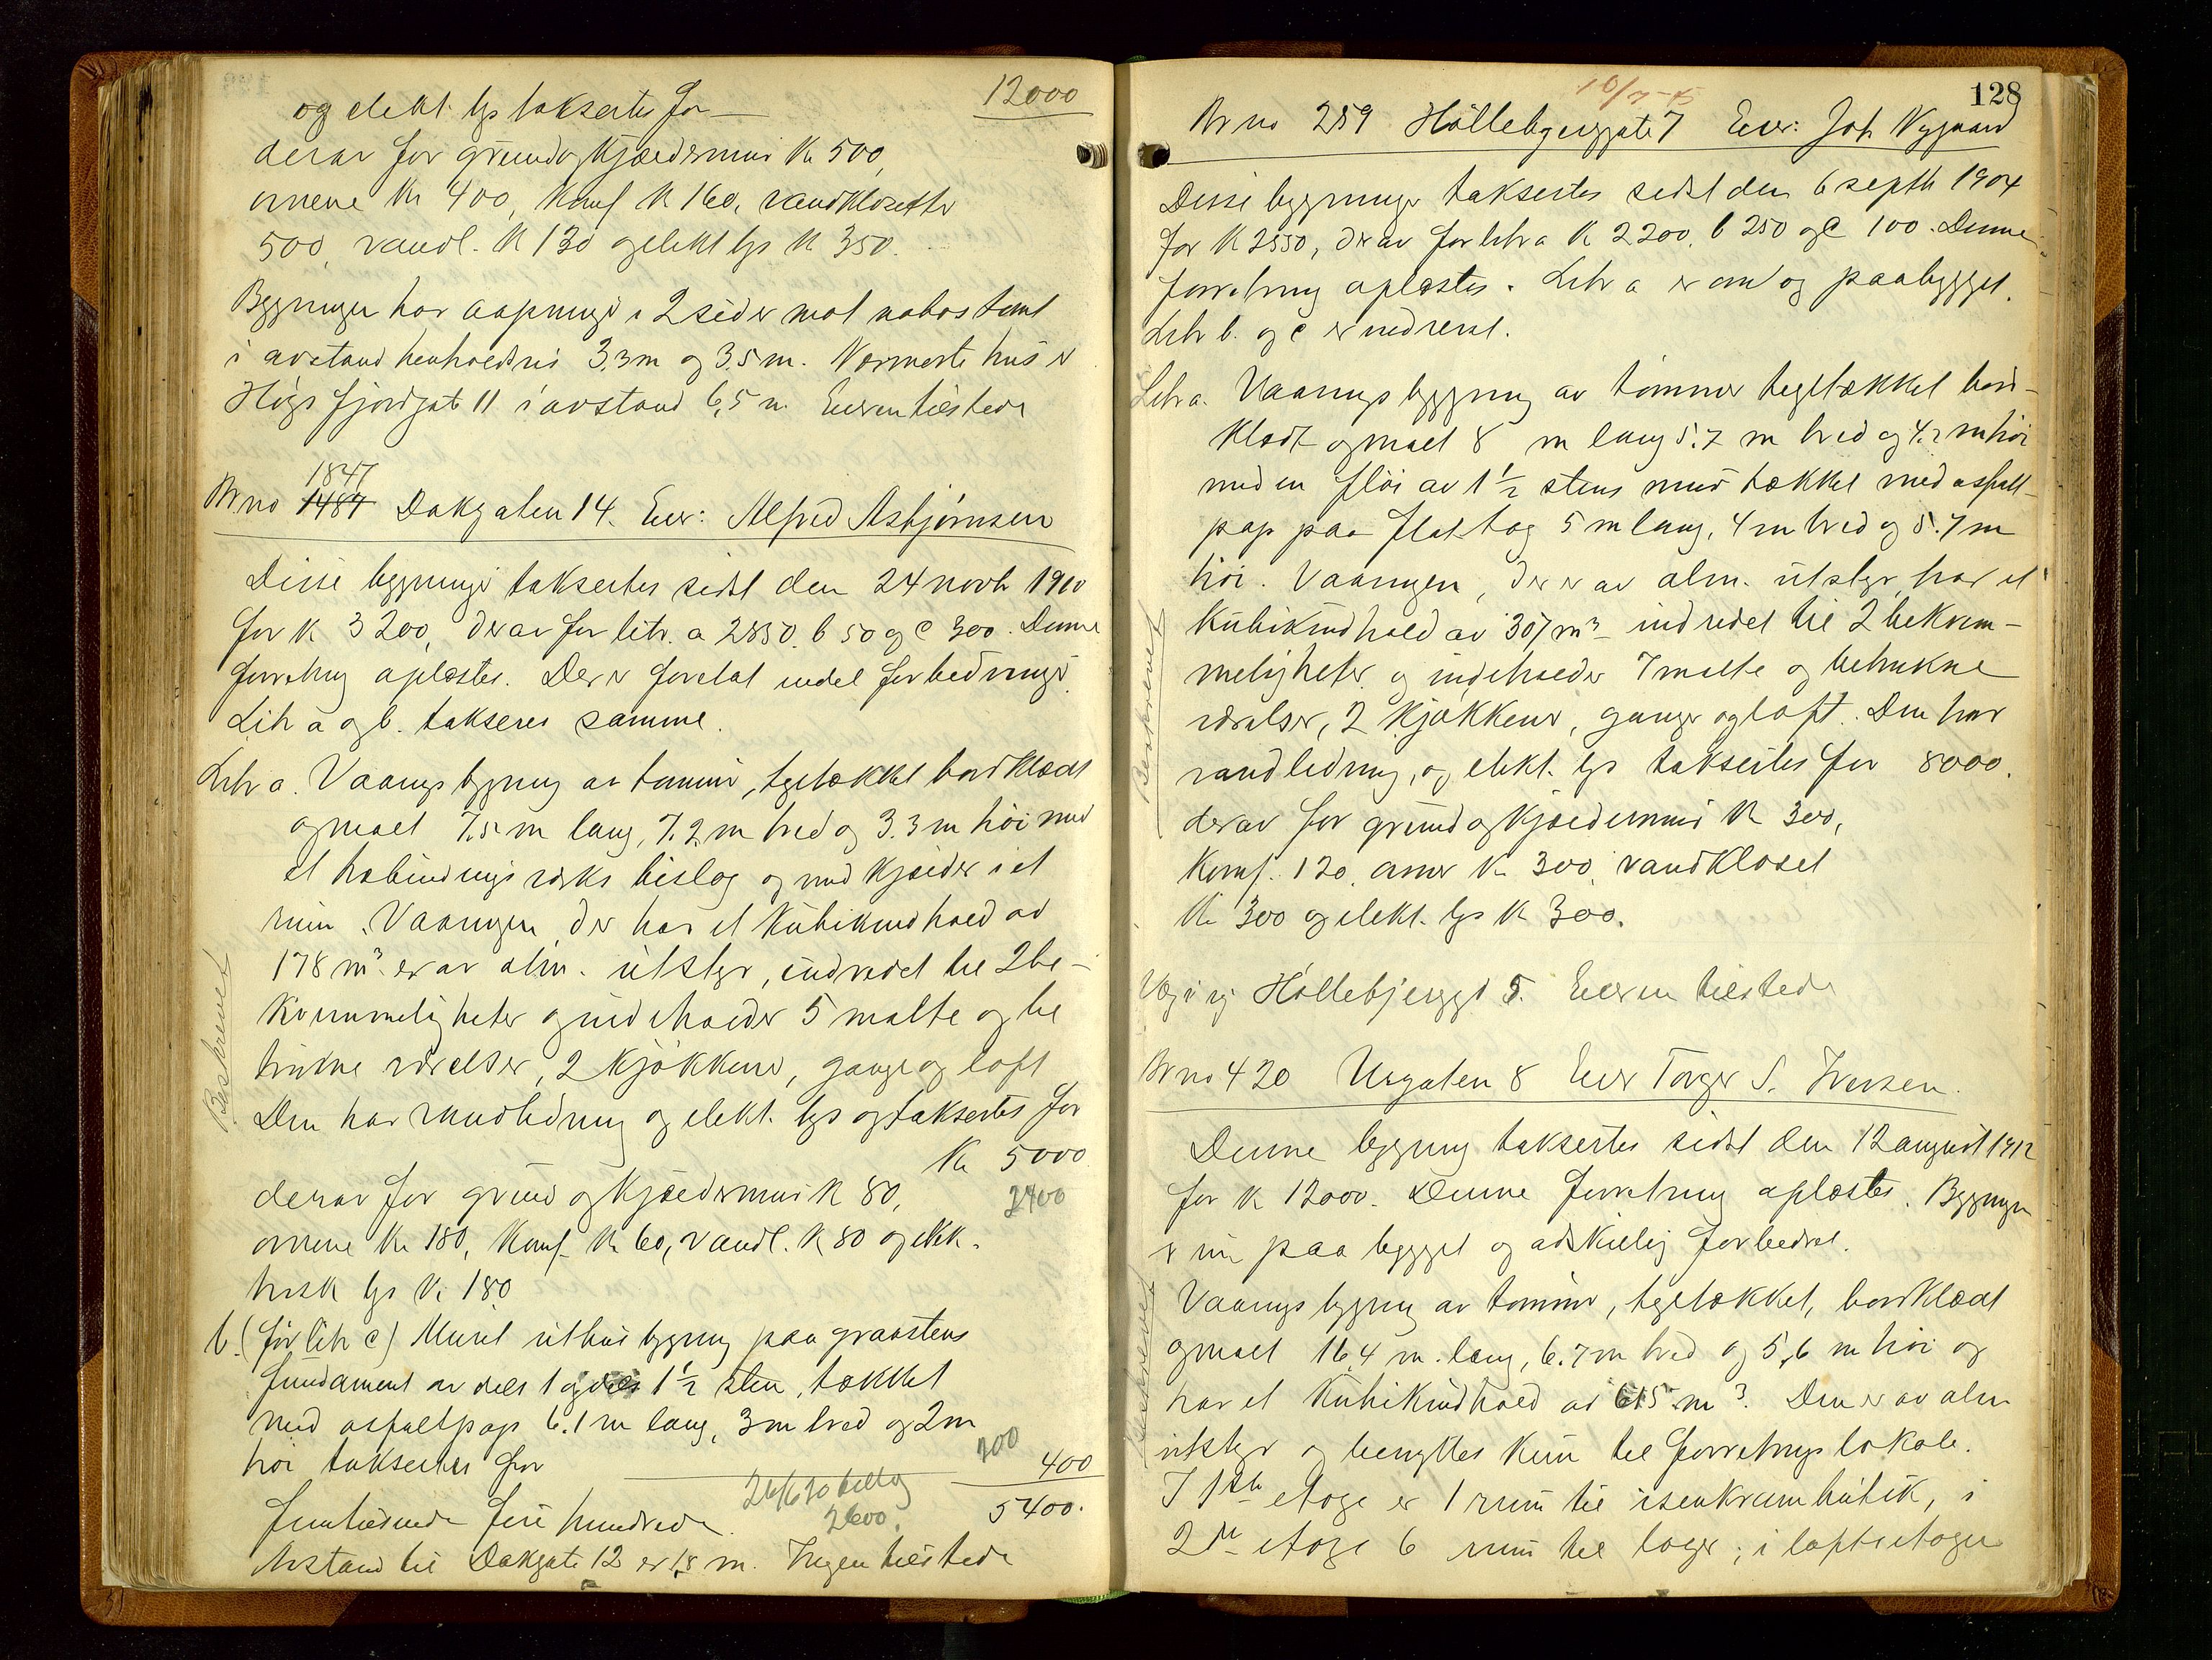 og elekt. lys taksertes for — 12000
derav for grund og kjældermur Kr 500,
ovnene Kr 400, Komf Kr 160, vandklosetter
500, vandl. Kr 130 og elekt lys Kr 350.
Bygningen har aapninger i 2 sider mot nabos tomt
i avstand henholdsvis 3.3 m og 3.5 m. Nærmeste hus er
Høgsfjordgate 11 i avstand 6,5 m. Eieren tilstede
1847
Br no 1487 Dokgaten 14. Eier: Alfred Asbjørnsen
Disse bygninger taksertes sidst den 24 novbr 1910
for Kr 3200, derav for litr. a 2850. b 50 og c 300. Denne
forretning oplæstes. Der er foretat endel forbedringer
Litr a og b. takseres samme.
Litr a. Vaaningsbygning av tømmer, tegltækket bordklædt
og malt 7.5 m lang, 7.2 m bred og 3.3 m høi med
et halvbindingsverks bislag og med kjælder i et
rum. Vaaningen der har et Kubikindhold av
178 m³ er av alm. utstyr, indredet til 2 be-
kvemmeligheter og indeholder 5 malte og be
trukne værelser, 2 kjøkkener, gange og loft
Den har vandledning og elekt. lys og taksertes for
Kr 5000
derav for grund og kjældermur Kr 80, 2400
ovnene Kr 180, Komf. Kr 60, vandl. Kr 80 og elek-
trisk lys Kr 180
Beskrevet
b. (før litr c) Muret uthusbygning paa graastens
fundament av dels 1 og dels 1½ sten, tækket
med asfaltpap 6.1 m lang, 3 m bred og 2 m
høi takseres for 200 400
26/6 30 tillæg
2600. 5400.
femtusinde fire hundrede.
Avstand til Dokgate 12 er 1,8 m. Ingen tilstede
10/7-45
128
Br no 259 Hollebergergate 7 Eier: Joh Nygaard
Disse bygninger taksertes sidst den 6 septbr 1904
for Kr 2550, derav for litr a Kr 2200. b 250 og c 100. Denne
forretning oplæstes. Litr a er om og paabygget.
Litr b. og c er nedrevet.
Litr a. Vaaningsbygning av tømmer teglstækket bord-
klædt og malt 8 m lang 5.7 m bred og 4.2 m høi
med en fløi av 1½ stens mur tækket med asfalt-
pap paa flat tag 5 m lang, 4 m bred og 5.7 m
høi. Vaaningen, der er av alm. utstyr, har et
Kubikindhold av 307 m³ indredet til 2 bekvem-
meligheter og indeholder 7 malte og betrukne
værelser, 2 kjøkkener, ganger og loft. Den har
vandledning, og elekt. lys takseites for 8000.
derav for grund og kjældermur Kr 300,
Komf. 120. ovner Kr 300, vandkloset
Kr 300 og elekt. lys Kr 300.
Beskrevet
Væg i væg Hollebjerggt 5. Eieren tilstede
Br no 420 Urgaten 8 Eier Torger S. Iversen.
Denne bygning taksertes sidst den 12 august 1912
for Kr 12000. Denne forretning oplæstes. Bygningen
er nu paa bygget og adskillig forbedret.
Vaaningsbygning av tømmer, teglstækket, bordklædt
og malt 16.4 m. lang, 6.7 m bred og 5,6 m høi og
har et Kubikindhold av 615 m³. Den er av alm
utstyr og benyttes kun til forretningslokale.
I 1ste etage er 1 rum til isenkrambutik, i
2de etage 6 rum til lager; i loftsetagen
Beskrevet